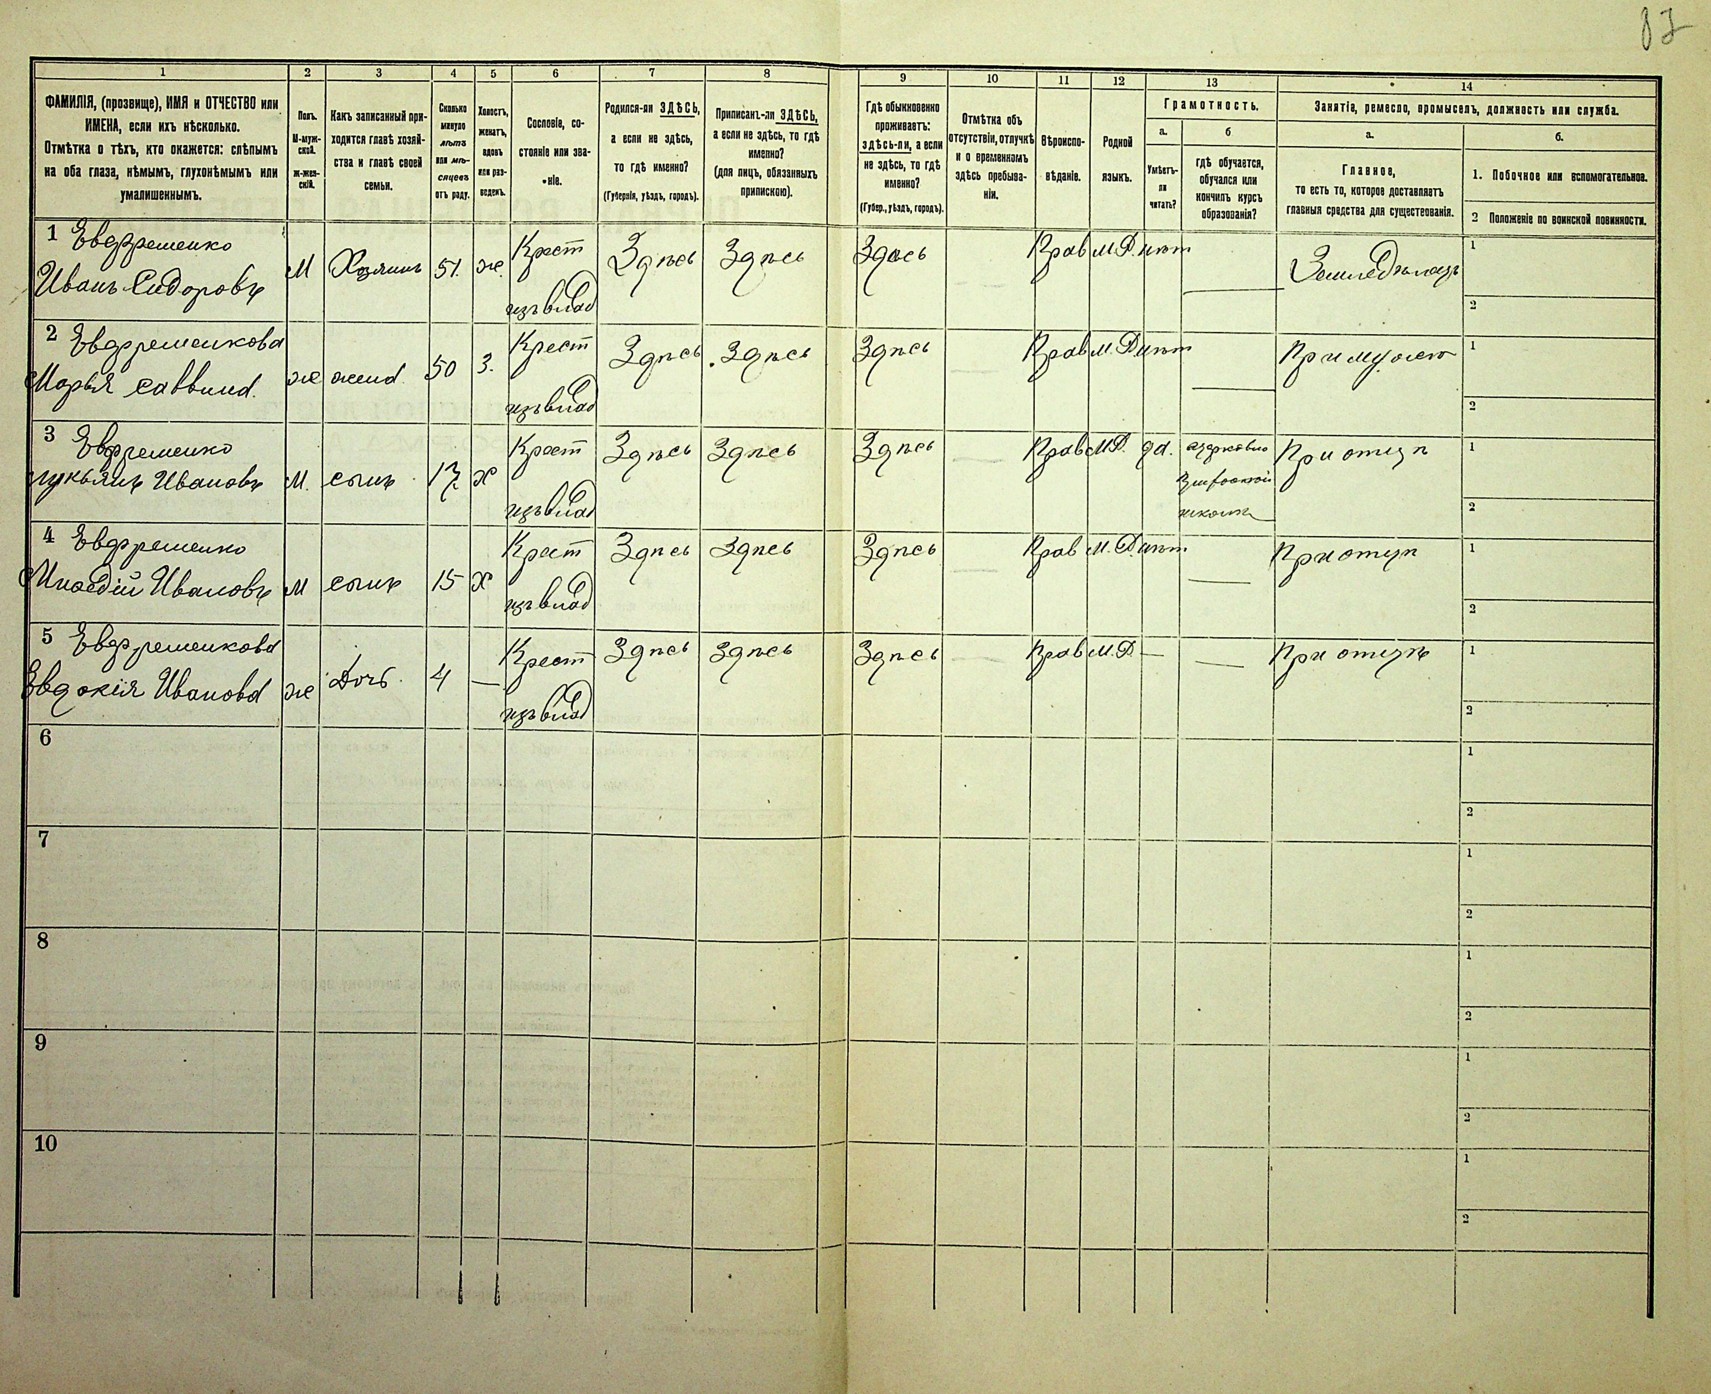 87
1 2 3 4 5 6 7 8 9 10 11 12 13 14
ФАМИЛІЯ, (прозвище), ИМЯ и ОТЧЕСТВО или
ИМЕНА, если ихъ нѣсколько.
Отмѣтка о тѣхъ, кто окажется: слѣпымъ
на оба глаза, нѣмымъ, глухонѣмымъ или
умалишеннымъ.
Полъ.
М-муж-
ской.
ж-жен-
скій.
Какъ записанный при-
ходится главѣ хозяй-
ства и главѣ своей
семьи.
Сколько
минуло
лѣтъ
или мѣ-
сяцевъ
отъ роду.
Холостъ,
женатъ,
вдовъ
или раз-
веденъ.
Сословіе, со-
стояніе или зва-
ніе.
Родился-ли ЗДѢСЬ,
а если не здѣсь,
то гдѣ именно?
(Губернія, уѣздъ, городъ).
Приписанъ-ли ЗДѢСЬ,
а если не здѣсь, то гдѣ
именно?
(для лицъ, обязанныхъ
припискою).
Гдѣ обыкновенно
проживаетъ:
здѣсь-ли, а если
не здѣсь, то гдѣ
именно?
(Губер., уѣздъ, городъ).
Отмѣтка объ
отсутствіи, отлучкѣ
и о временномъ
здѣсь пребыва-
ніи.
Вѣроиспо-
вѣданіе.
Родной
языкъ.
Грамотность.
а. б
Умѣетъ-
ли
читать?
гдѣ обучается,
обучался или
кончилъ курсъ
образованія?
Занятія, ремесло, промыселъ, должность или служба.
а. б.
Главное,
то есть то, которое доставляетъ
главныя средства для существованія.
1. Побочное или вспомогательное.
2 Положеніе по воинской повинности.
1 Евфременко Крест Здѣсь Здѣсь Здѣсь Прав М.Р. нѣт 1
Иванъ Сидоровъ М Хозяинъ 51. ж. изъ влад Земледѣлецъ 2
2 Евфременкова Крест Здѣсь Здѣсь Здѣсь Прав М.Р. нѣт При 1
Марья Саввина. ж жена 50 З. изъ влад 2
3 Евфременко Крест Здѣсь Здѣсь Здѣсь Прав М.Р. да. При отцѣ 1
Лукьянъ Ивановъ М. сынъ 17 Х изъ влад школѣ 2
4 Евфременко Крест Здѣсь Здѣсь Здѣсь Прав М.Р. нѣт При отцѣ 1
Ивановъ М сынъ 15 Х изъ влад 2
5 Евфременкова Крест Здѣсь Здѣсь Здѣсь Прав М.Р. — При отцѣ 1
Евдокія Иванова ж Дочь 4 — изъ влад 2
6 1
2
7 1
2
8 1
2
9 1
2
10 1
2